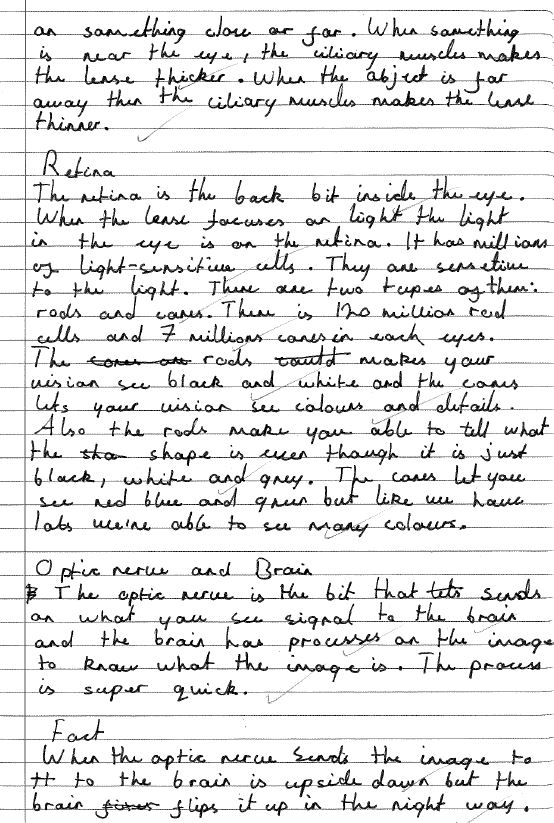 on something close or far. When something
is near the eye, the ciliary muscles makes
the lense thicker. When the object is far
away then the ciliary muscles makes the lense
thinner.
Retina
The retina is the back bit inside the eye.
When the lense focuses on light the light
in the eye is on the retina. It has millions
of light-sensitive cells. They are sensetive
to the light. There are two types of them:
rods and cones. There is 120 million rod
cells and 7 millions cones in each eyes.
The cones are rods could makes your
vision see black and white and the cones
lets your vision see colours and details.
Also the rods make you able to tell what
the sha shape is even though it is just
black, white and grey. The cones let you
see red blue and green but like we have
lots we're able to see many colours.
Optic nerve and Brain
The optic nerve is the bit that lets sends
on what you see signal to the brain
and the brain has processes on the image
to know what the image is. The process
is super quick.
Fact
When the optic nerve sends the image to
tt to the brain is upside down but the
brain fixes flips it up in the right way.